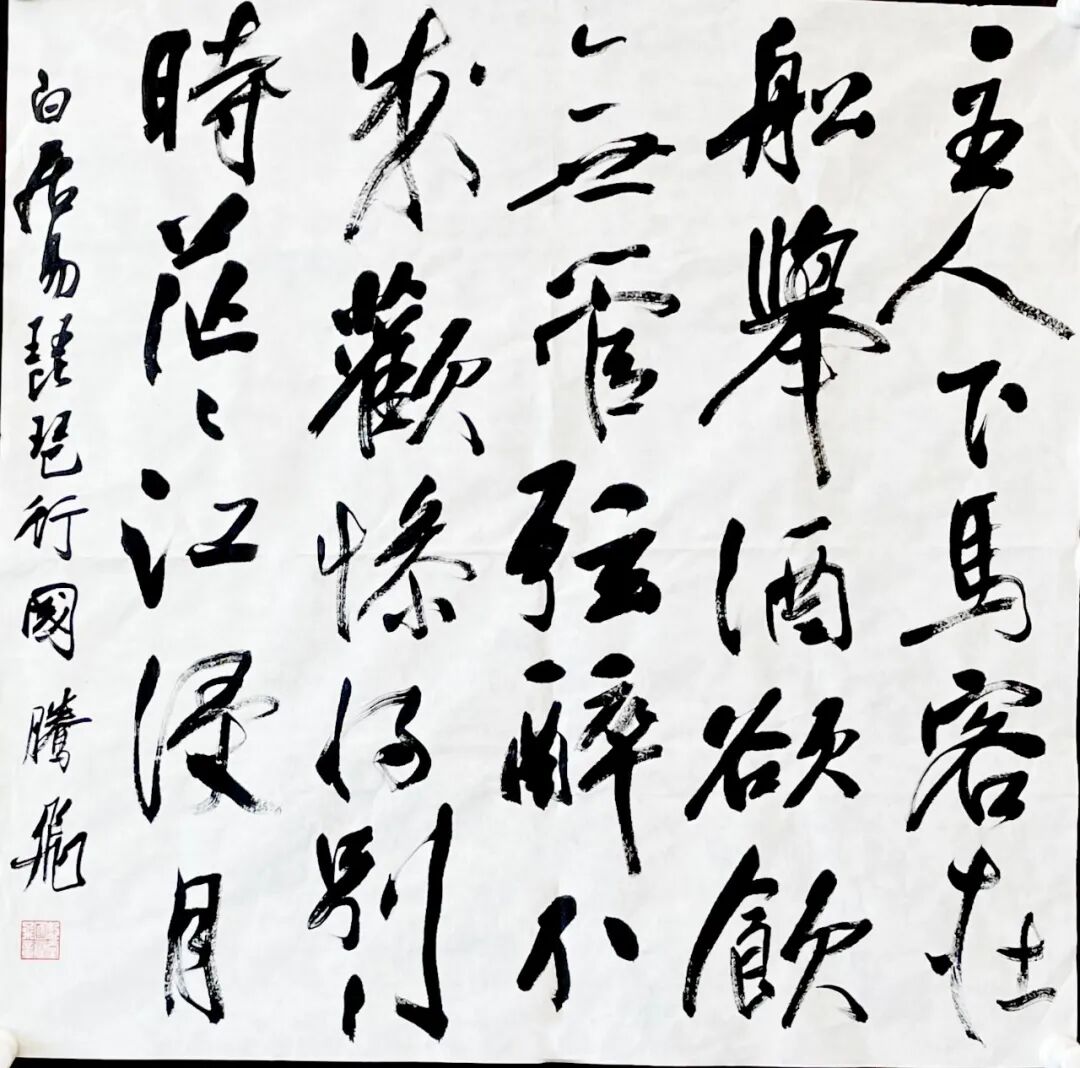 主人下馬客在
船舉酒欲飲
無管弦醉不
成歡慘將別〻
時茫〻江浸月
白居易琵琶行 國騰飛